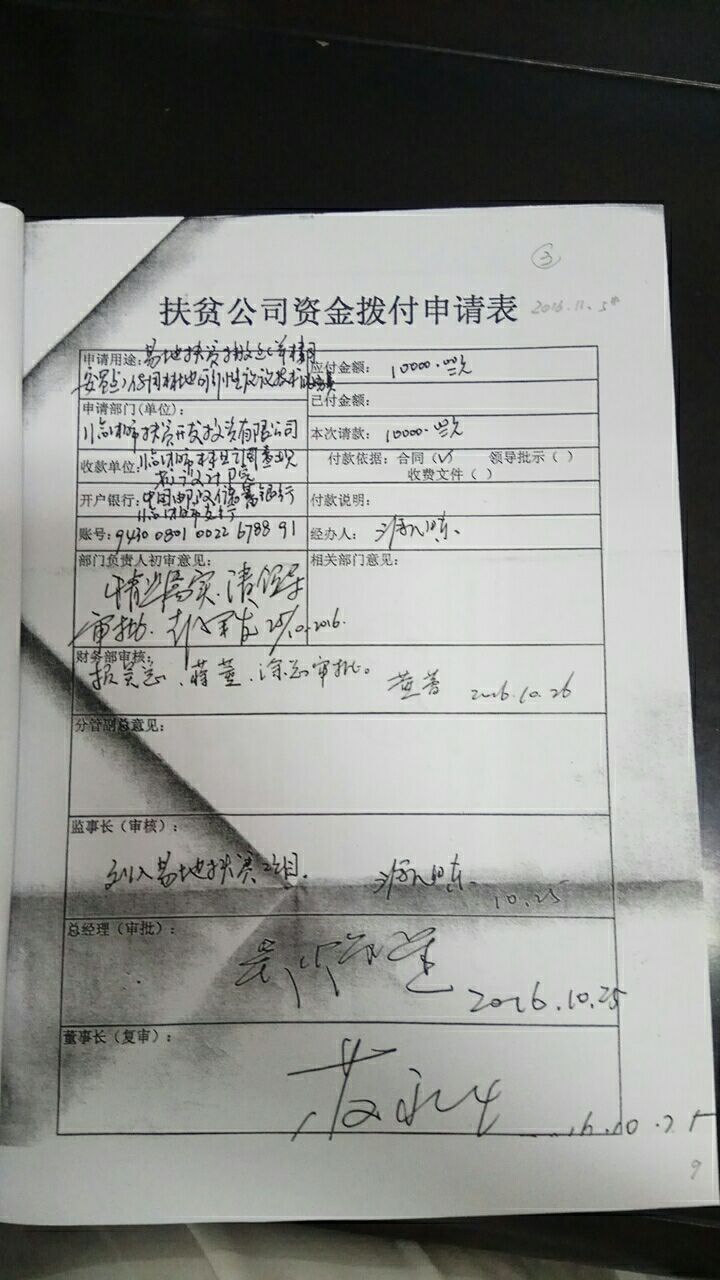 ③
扶贫公司资金拨付申请表
2016.11.
申请用途：易地扶贫搬迁
应付金额： 10000.00元
已付金额：
申请部门(单位)：
临湘市扶贫开发投资有限公司
本次请款： 10000.00元
收款单位：临湘市林业调查规
划设计院
付款依据：合同（√） 领导批示（ ）
收费文件（ ）
开户银行：中国邮政储蓄银行
临湘市支行
付款说明：
账号：9430 0801 0022 6788 91
经办人：
部门负责人初审意见：
相关部门意见：
情况属实，请领导
审批. 25/10.2016.
财务部审核：
报吴总、蒋董、涂总审批。
2016.10.26
分管副总意见：
监事长（审核）：
列入易地扶贫项目.
10.25
总经理（审批）：
2016.10.25
董事长（复审）：
16.10.25
9